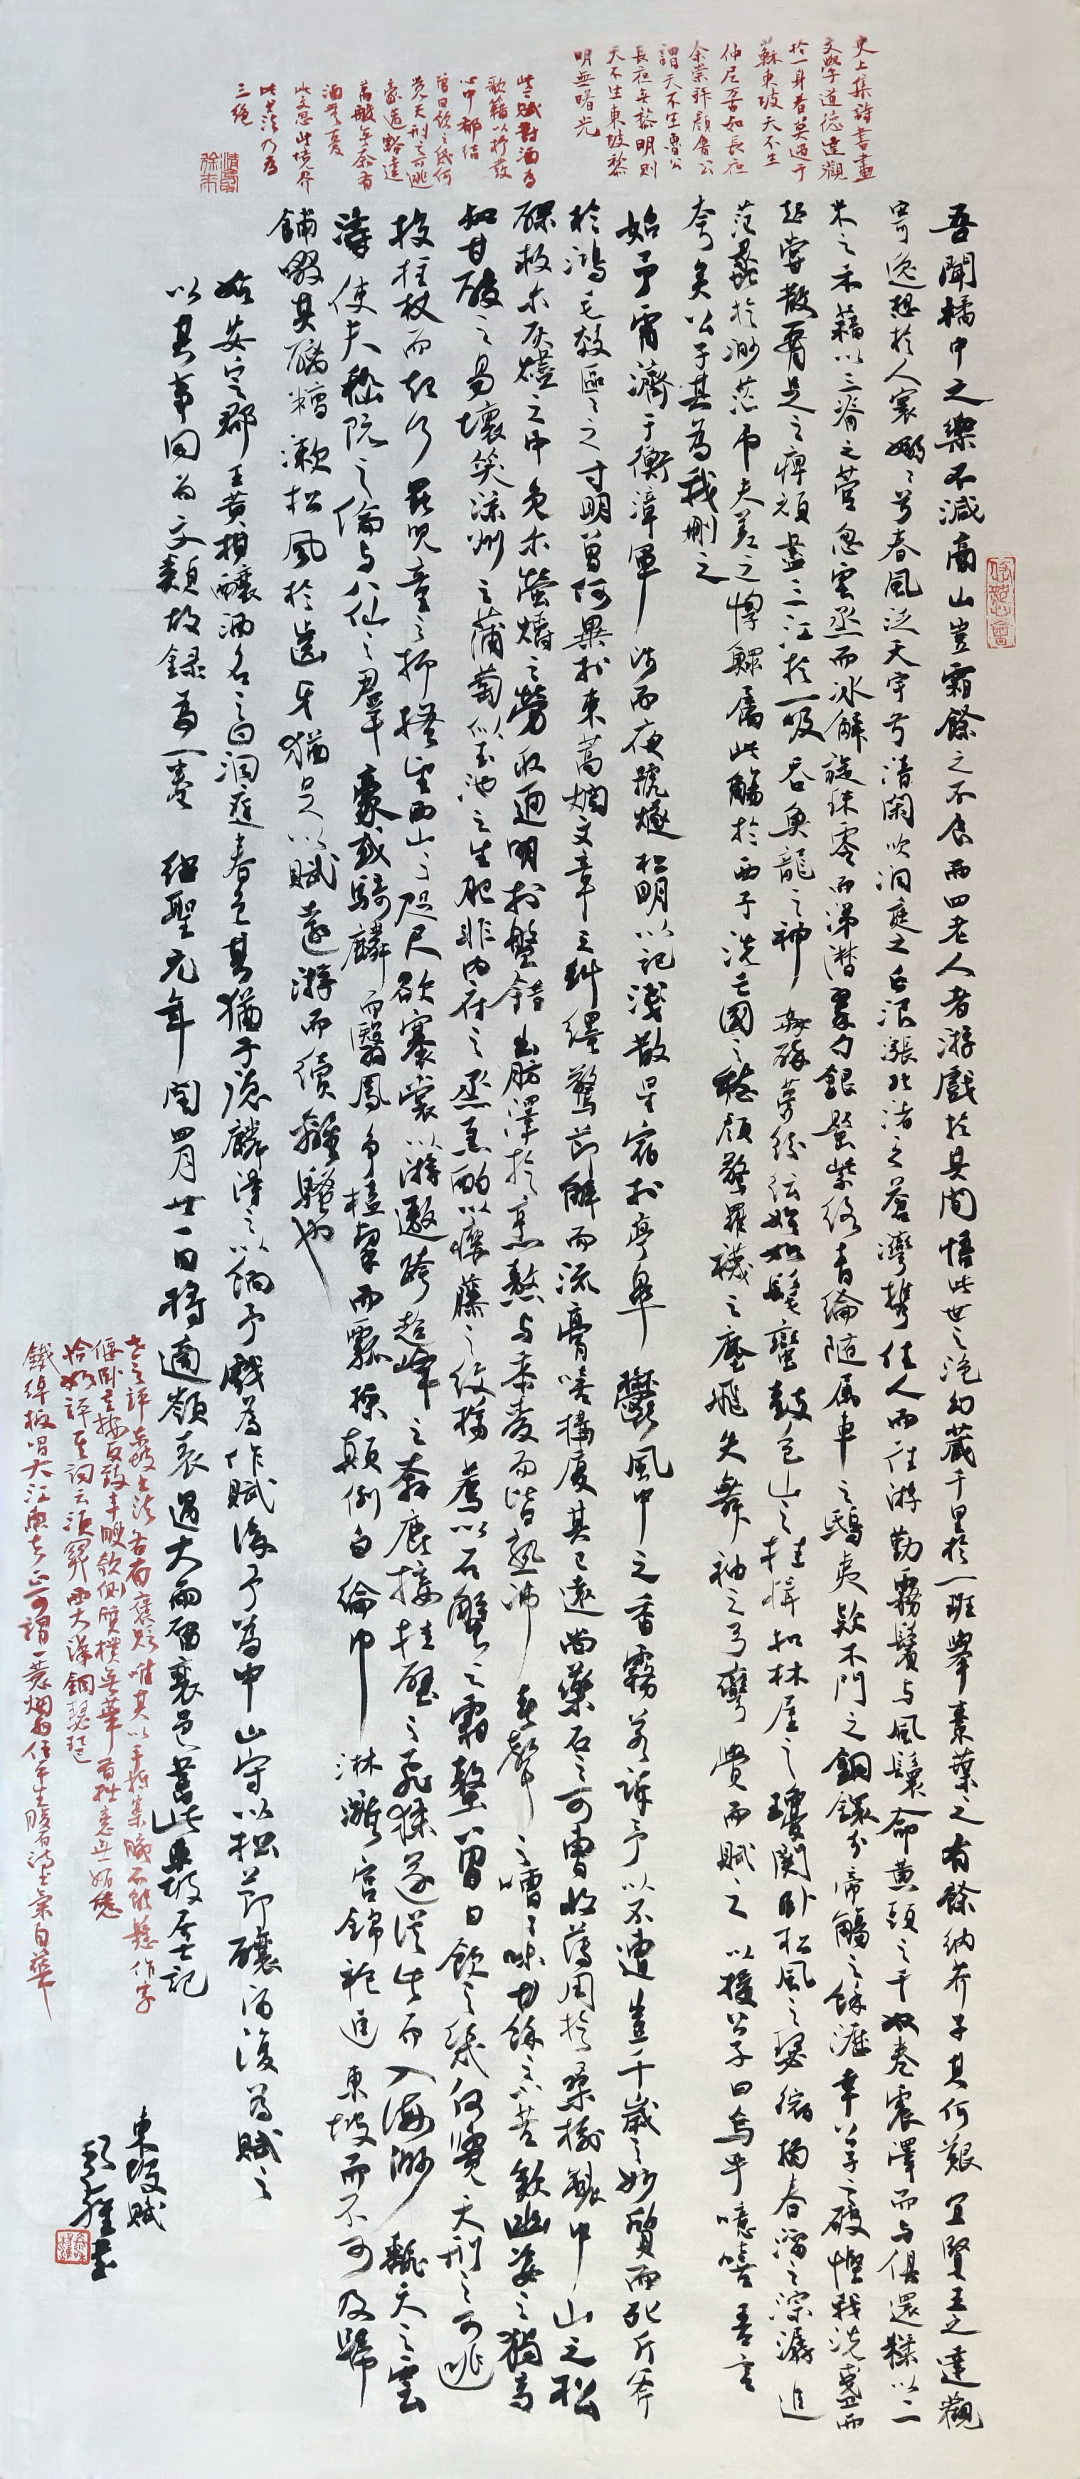 史上集詩書畫
文學道德達觀
於一身者莫過于
蘇東坡天不生
仲尼萬古如長夜
余崇拜顏魯公
謂天不生魯公
長夜無黎明則
天不生東坡黎
明無曙光
此二賦對酒為
歌藉以抒發
心中鬱結
曾日飲之幾何
覺天刑之可逃
豪邁豁達
萬般無奈有
酒莫憂
此文思此境界
此書法乃為
三絕
吾聞橘中之樂不減商山豈霜餘之不食而四老人者游戲於其間悟此世之泡幻藏千里於一班舉棗葉之有餘納芥子其何艱宜賢王之達觀
寄逸想於人寰嫋嫋兮春風泛天宇兮清閑吹洞庭之白浪漲北渚之蒼灣攜佳人而往游勤霧鬢與風鬟命黃頭之千奴卷震澤而與俱還糅以二
米之禾藉以三脊之菅忽雲烝而冰解旋珠零而涕潸翠勺銀罌紫絡青綸隨屬車之鴟夷款木門之銅鐶分帝觴之餘瀝幸公子之破慳我洗盞而
起嘗散腰足之痺頑盡三江於一吸吞魚龍之神姦醉夢紛紜始如髦蠻鼓包山之桂楫扣林屋之瓊關臥松風之瑟縮揭春溜之淙潺追
范蠡於渺茫弔夫差之惸鰥屬此觴於西子洗亡國之愁顏驚羅襪之塵飛失舞袖之弓彎覺而賦之以授公子曰烏乎噫嘻吾言
夸矣公子其為我刪之
始予宵濟于衡漳軍涉而夜號燧松明以記淺散星宿於亭皋鬱風中之香霧若訴予以不遭豈千歲之妙質而死斤斧
於鴻毛效區區之寸明曾何異於束蒿爛文章之糾纆驚節解而流膏嗟構廈其已遠尚藥石之可曹收薄用於桑榆製中山之松
醪救爾灰燼之中免爾螢爝之勞取通明於盤錯出肪澤於烹熬與黍麥而皆熟沸舂聲之嘈嘈味甘餘之小苦歎幽姿之獨高
知甘酸之易壞笑涼州之蒲萄似玉池之生肥非內府之烝羔酌以癭藤之紋樽薦以石蟹之霜螯曾日飲之幾何覺天刑之可逃
投拄杖而起行罷兒童之抑搔望西山之咫尺欲褰裳以游遨跨超峰之奔鹿接挂壁之飛猱遂從此而入海渺翻天之雲
濤使夫嵇阮之倫與八仙之群豪或騎麟而翳鳳爭榼挈而瓢操顛倒白綸巾淋漓宮錦袍追東坡而不可及歸
餔歠其醨糟漱松風於齒牙猶足以賦遠游而續離騷也
始安定郡王黃柑釀酒名之曰洞庭春色其猶子德麟得之以餉予戲為作賦後予為中山守以松節釀酒復為賦之
以其事同而文類故錄為一卷 紹聖元年閏四月廿一日將適嶺表遇大雨留襄邑書此東坡居士記
世之評東坡書法各有褒貶唯其以手抵案腕不能懸作字
偃臥
恰如評其詞云須關西大漢銅琵琶
鐵綽板唱大江東去
東坡賦